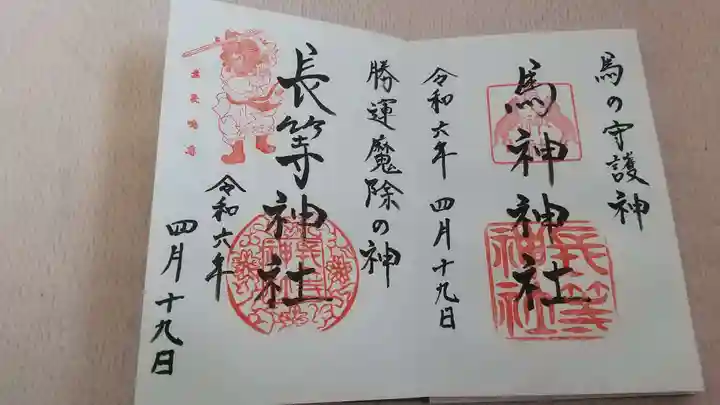 馬の守護神
馬神神社
令和六年 四月十九日
長等神社
勝運魔除の神
長等神社
長等神社
令和六年
四月十九日